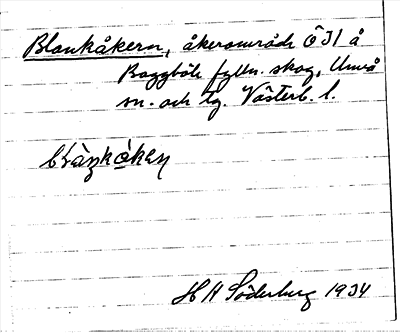 Blankåkern, åkerområde ÖJ1 å
Baggböle fylln. skog, Umeå
sn. och tg. Västerb. l.
H H Söderberg 1934